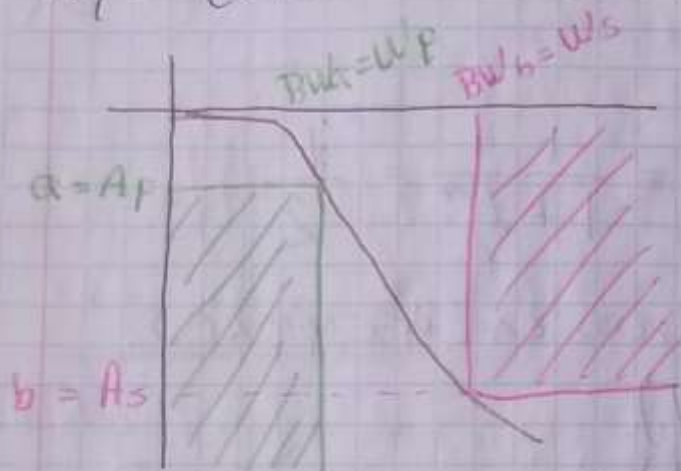 BWa = Wp
BWb = Ws
a = Ap
b = As